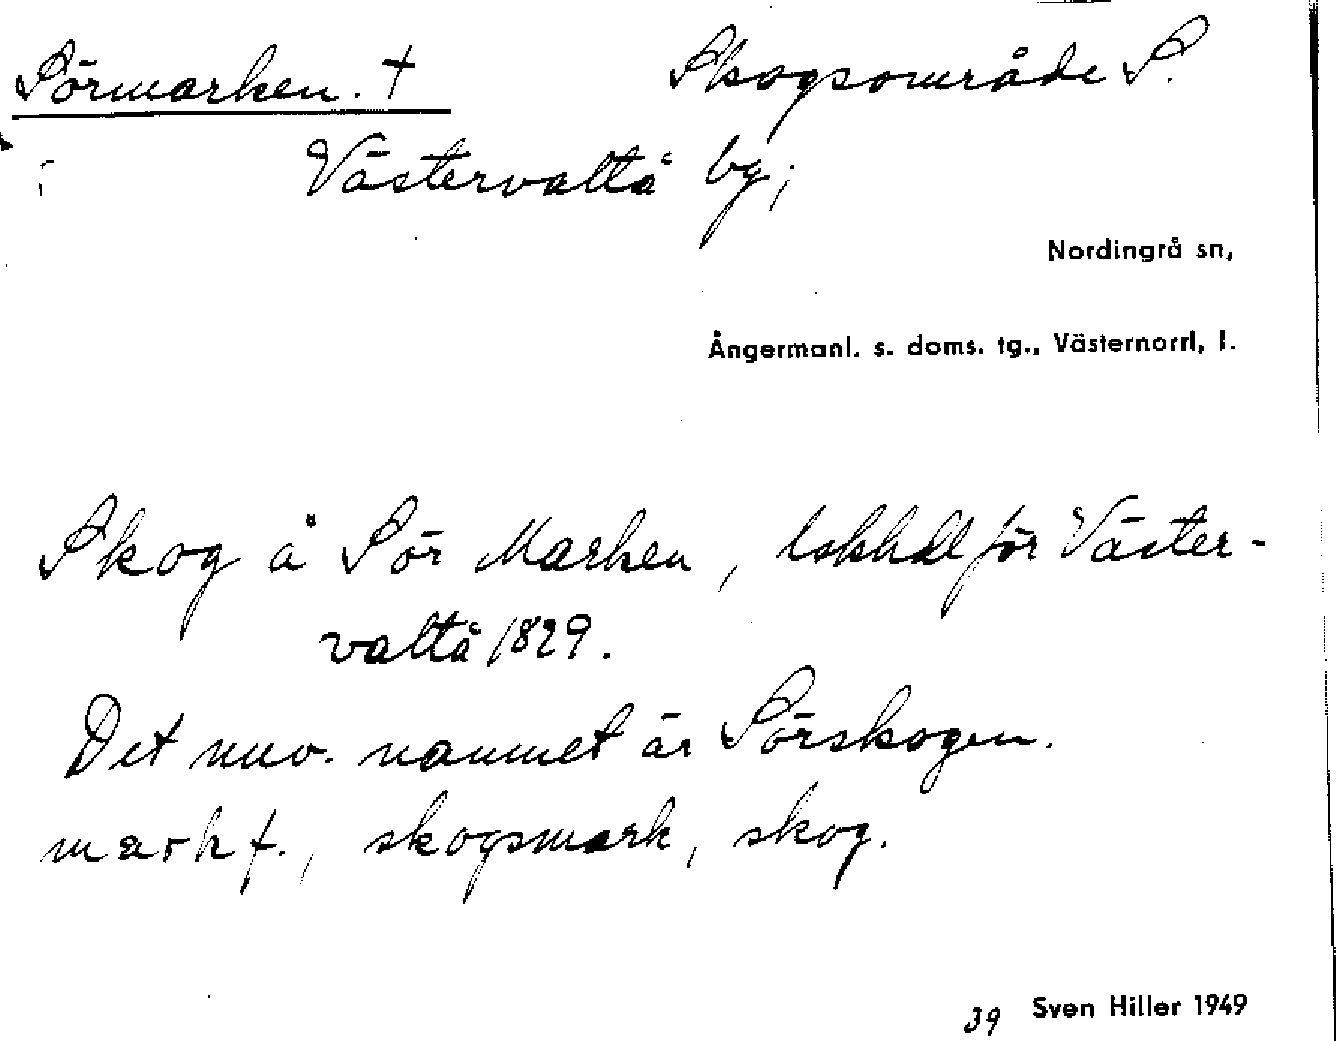 Sörmarken. † Skogsområde S.
i Västervaltå by;
Nordingrå sn,
Ångermanl. s. doms. tg., Västernorrl, l.
Skog å Sör Marken, lskhdl för Väster-
valtå 1829.
Det nuv. namnet är Sörskogen.
mark f., skogsmark, skog.
39 Sven Hiller 1949